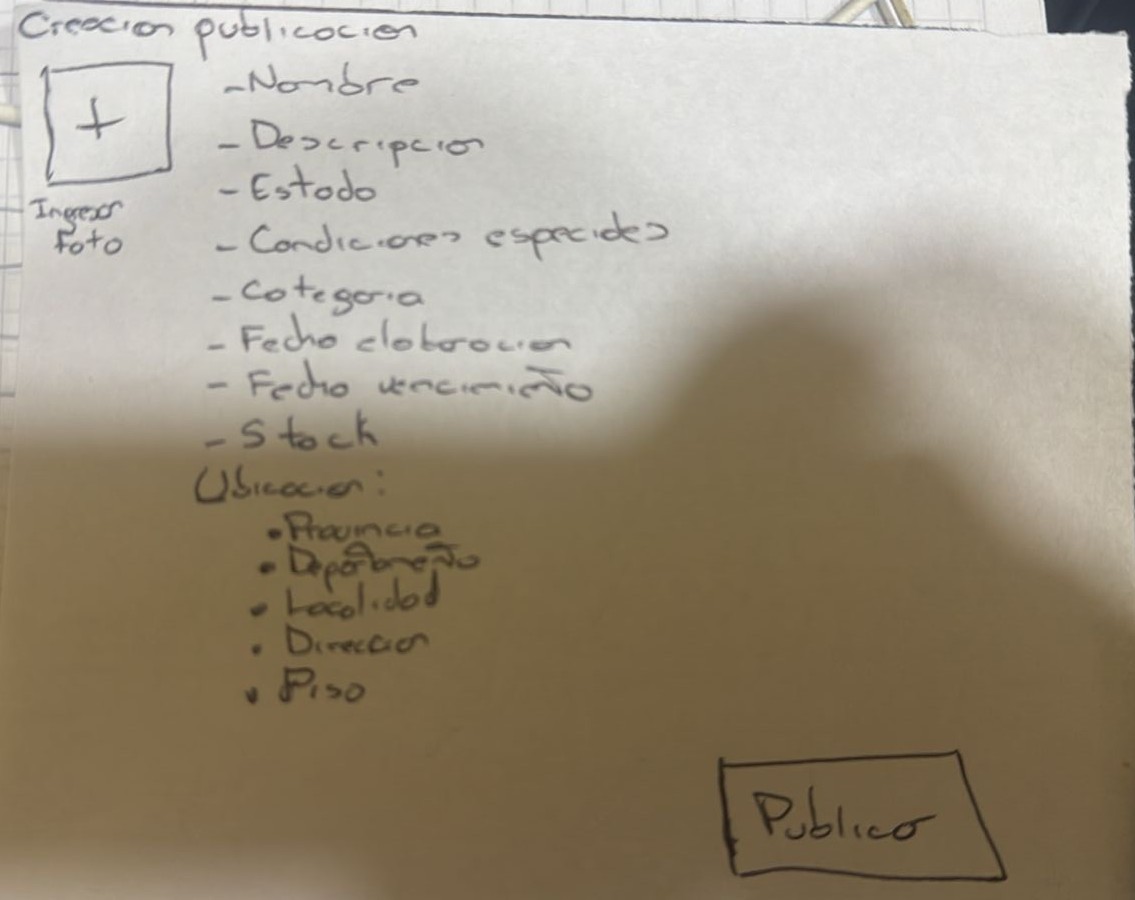 Creacion publicacion
+
Ingresar
foto
- Nombre
- Descripcion
- Estado
- Condiciones especiales
- Categoria
- Fecha elaboracion
- Fecha vencimiento
- Stock
Ubicacion:
• Provincia
• Departamento
• Localidad
• Direccion
• Piso
Publicar